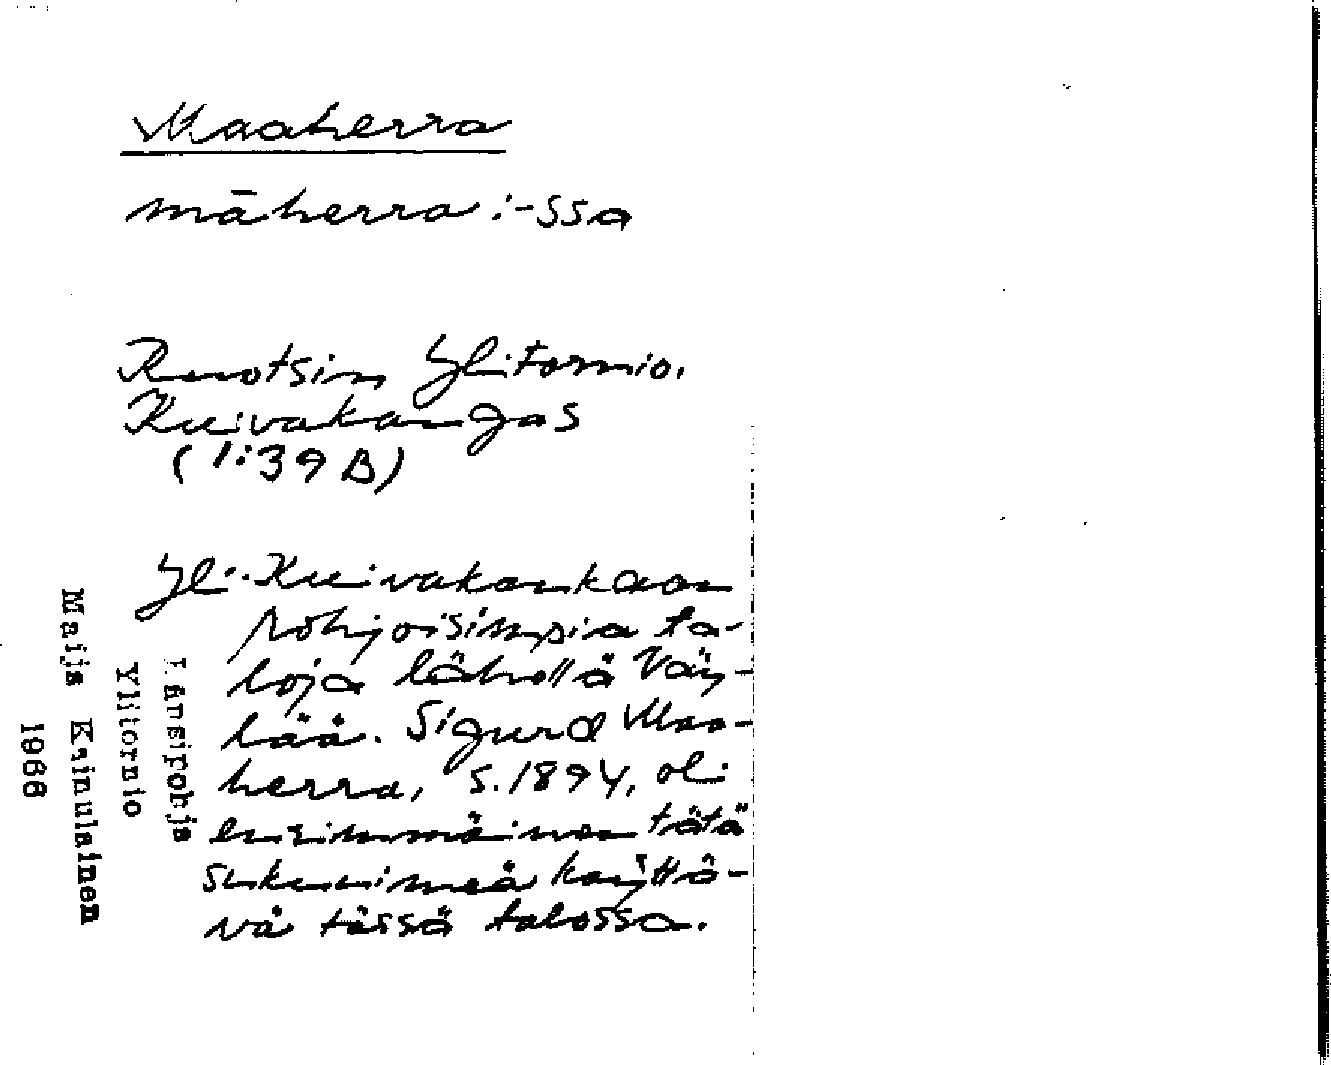 Maaherra
māherra :-ssa
Ruotsin Ylitornio.
Kuivakangas
(1:39 B)
Yli-Kuivakankaan
pohjoisimpia ta-
loja lähellä Väy-
lää. Sigurd Maa-
herra, s. 1894, oli
ensimmäinen tätä
sukunimeä käyttä-
vä tässä talossa.
Länsipohja
Ylitornio
Maija Kainulainen
1966